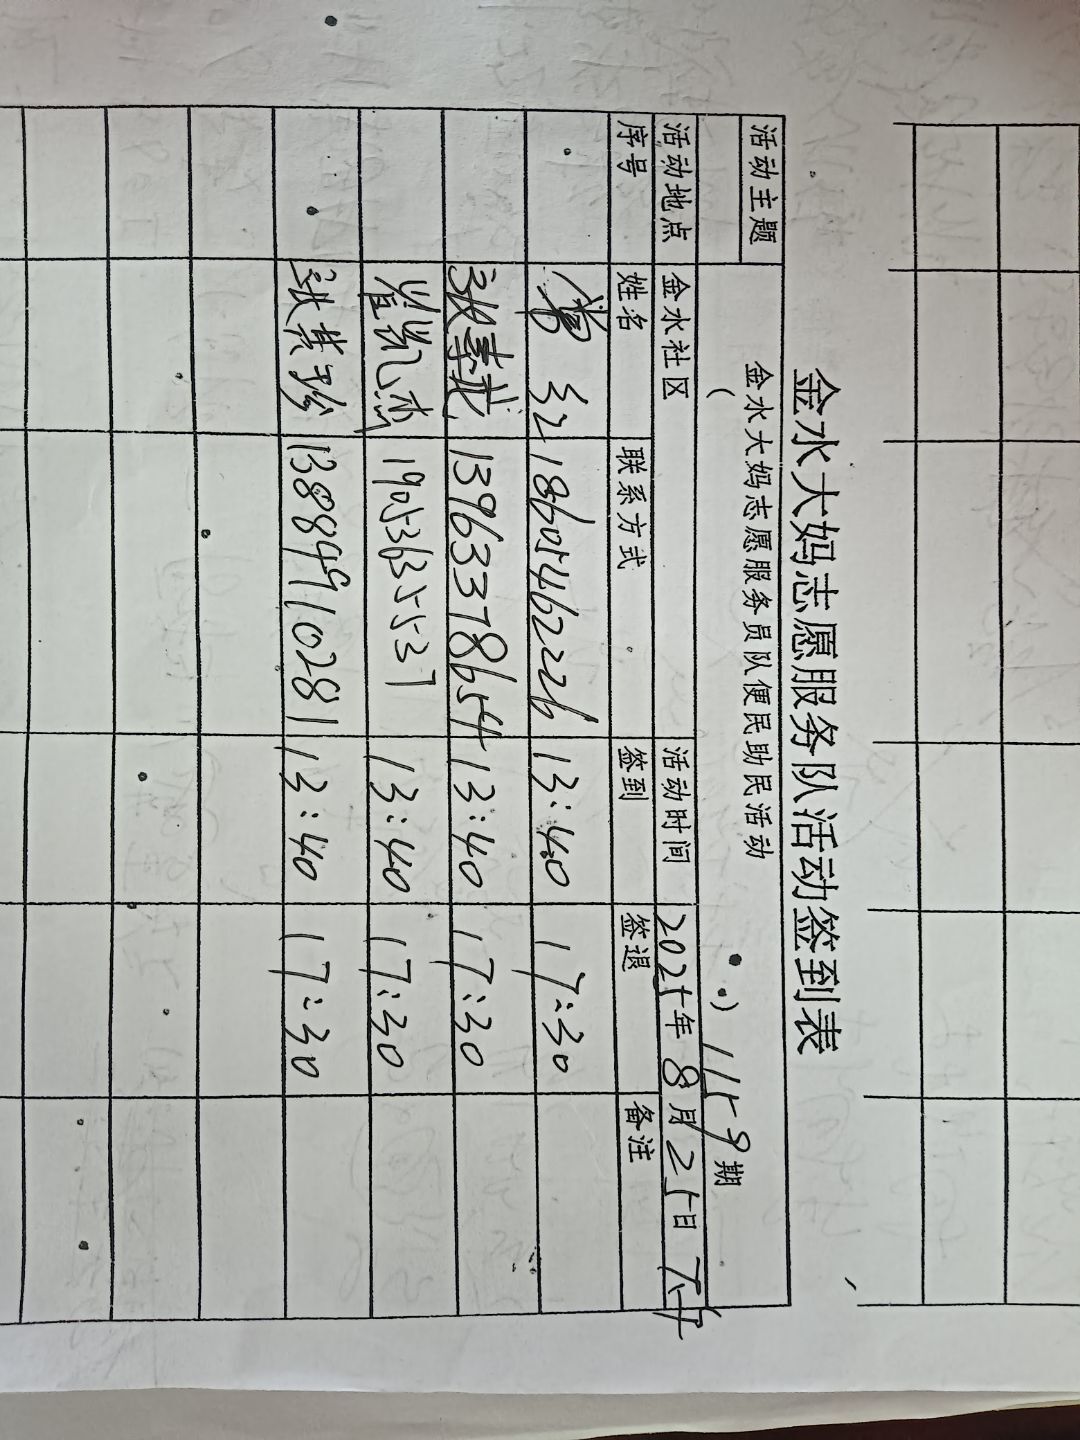 金水大妈志愿服务队活动签到表
活动主题 金水大妈志愿服务员队便民助民活动
( ) 1159期
活动地点 金水社区 活动时间 2025年8月25日 下午
序号 姓名 联系方式 签到 签退 备注
18605462226 13:40 17:30
13963378654 13:40 17:30
崔凯杰 19053635537 13:40 17:30
13884910281 13:40 17:30